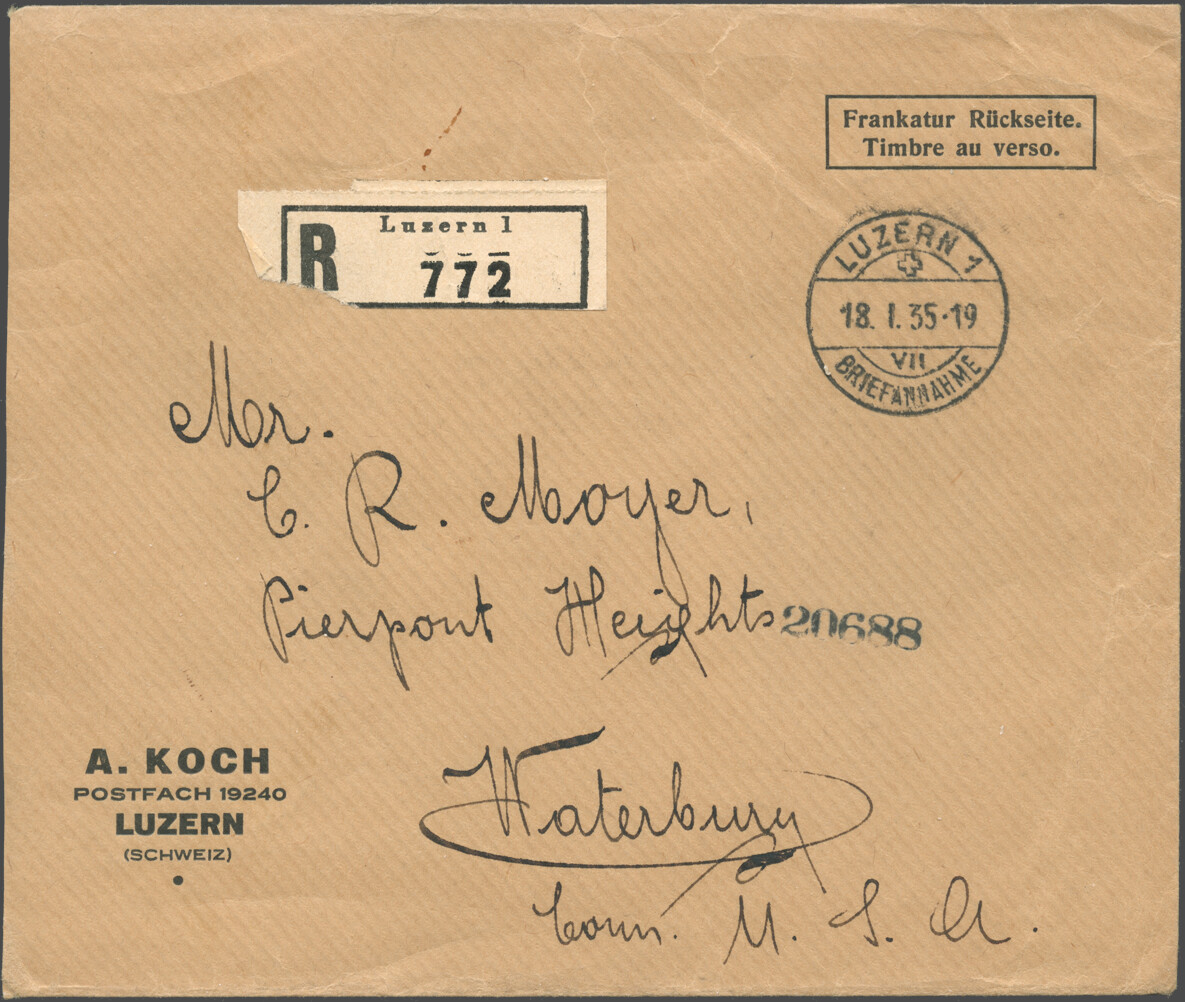 Frankatur Rückseite.
Timbre au verso.
R
Luzern 1
772
LUZERN 1
18. I. 35-19
VII
BRIEFANNAHME
Mr.
C. R. Moyer,
Pierpont Heights
20688
Waterbury
Conn. U. S. A.
A. KOCH
POSTFACH 19240
LUZERN
(SCHWEIZ)